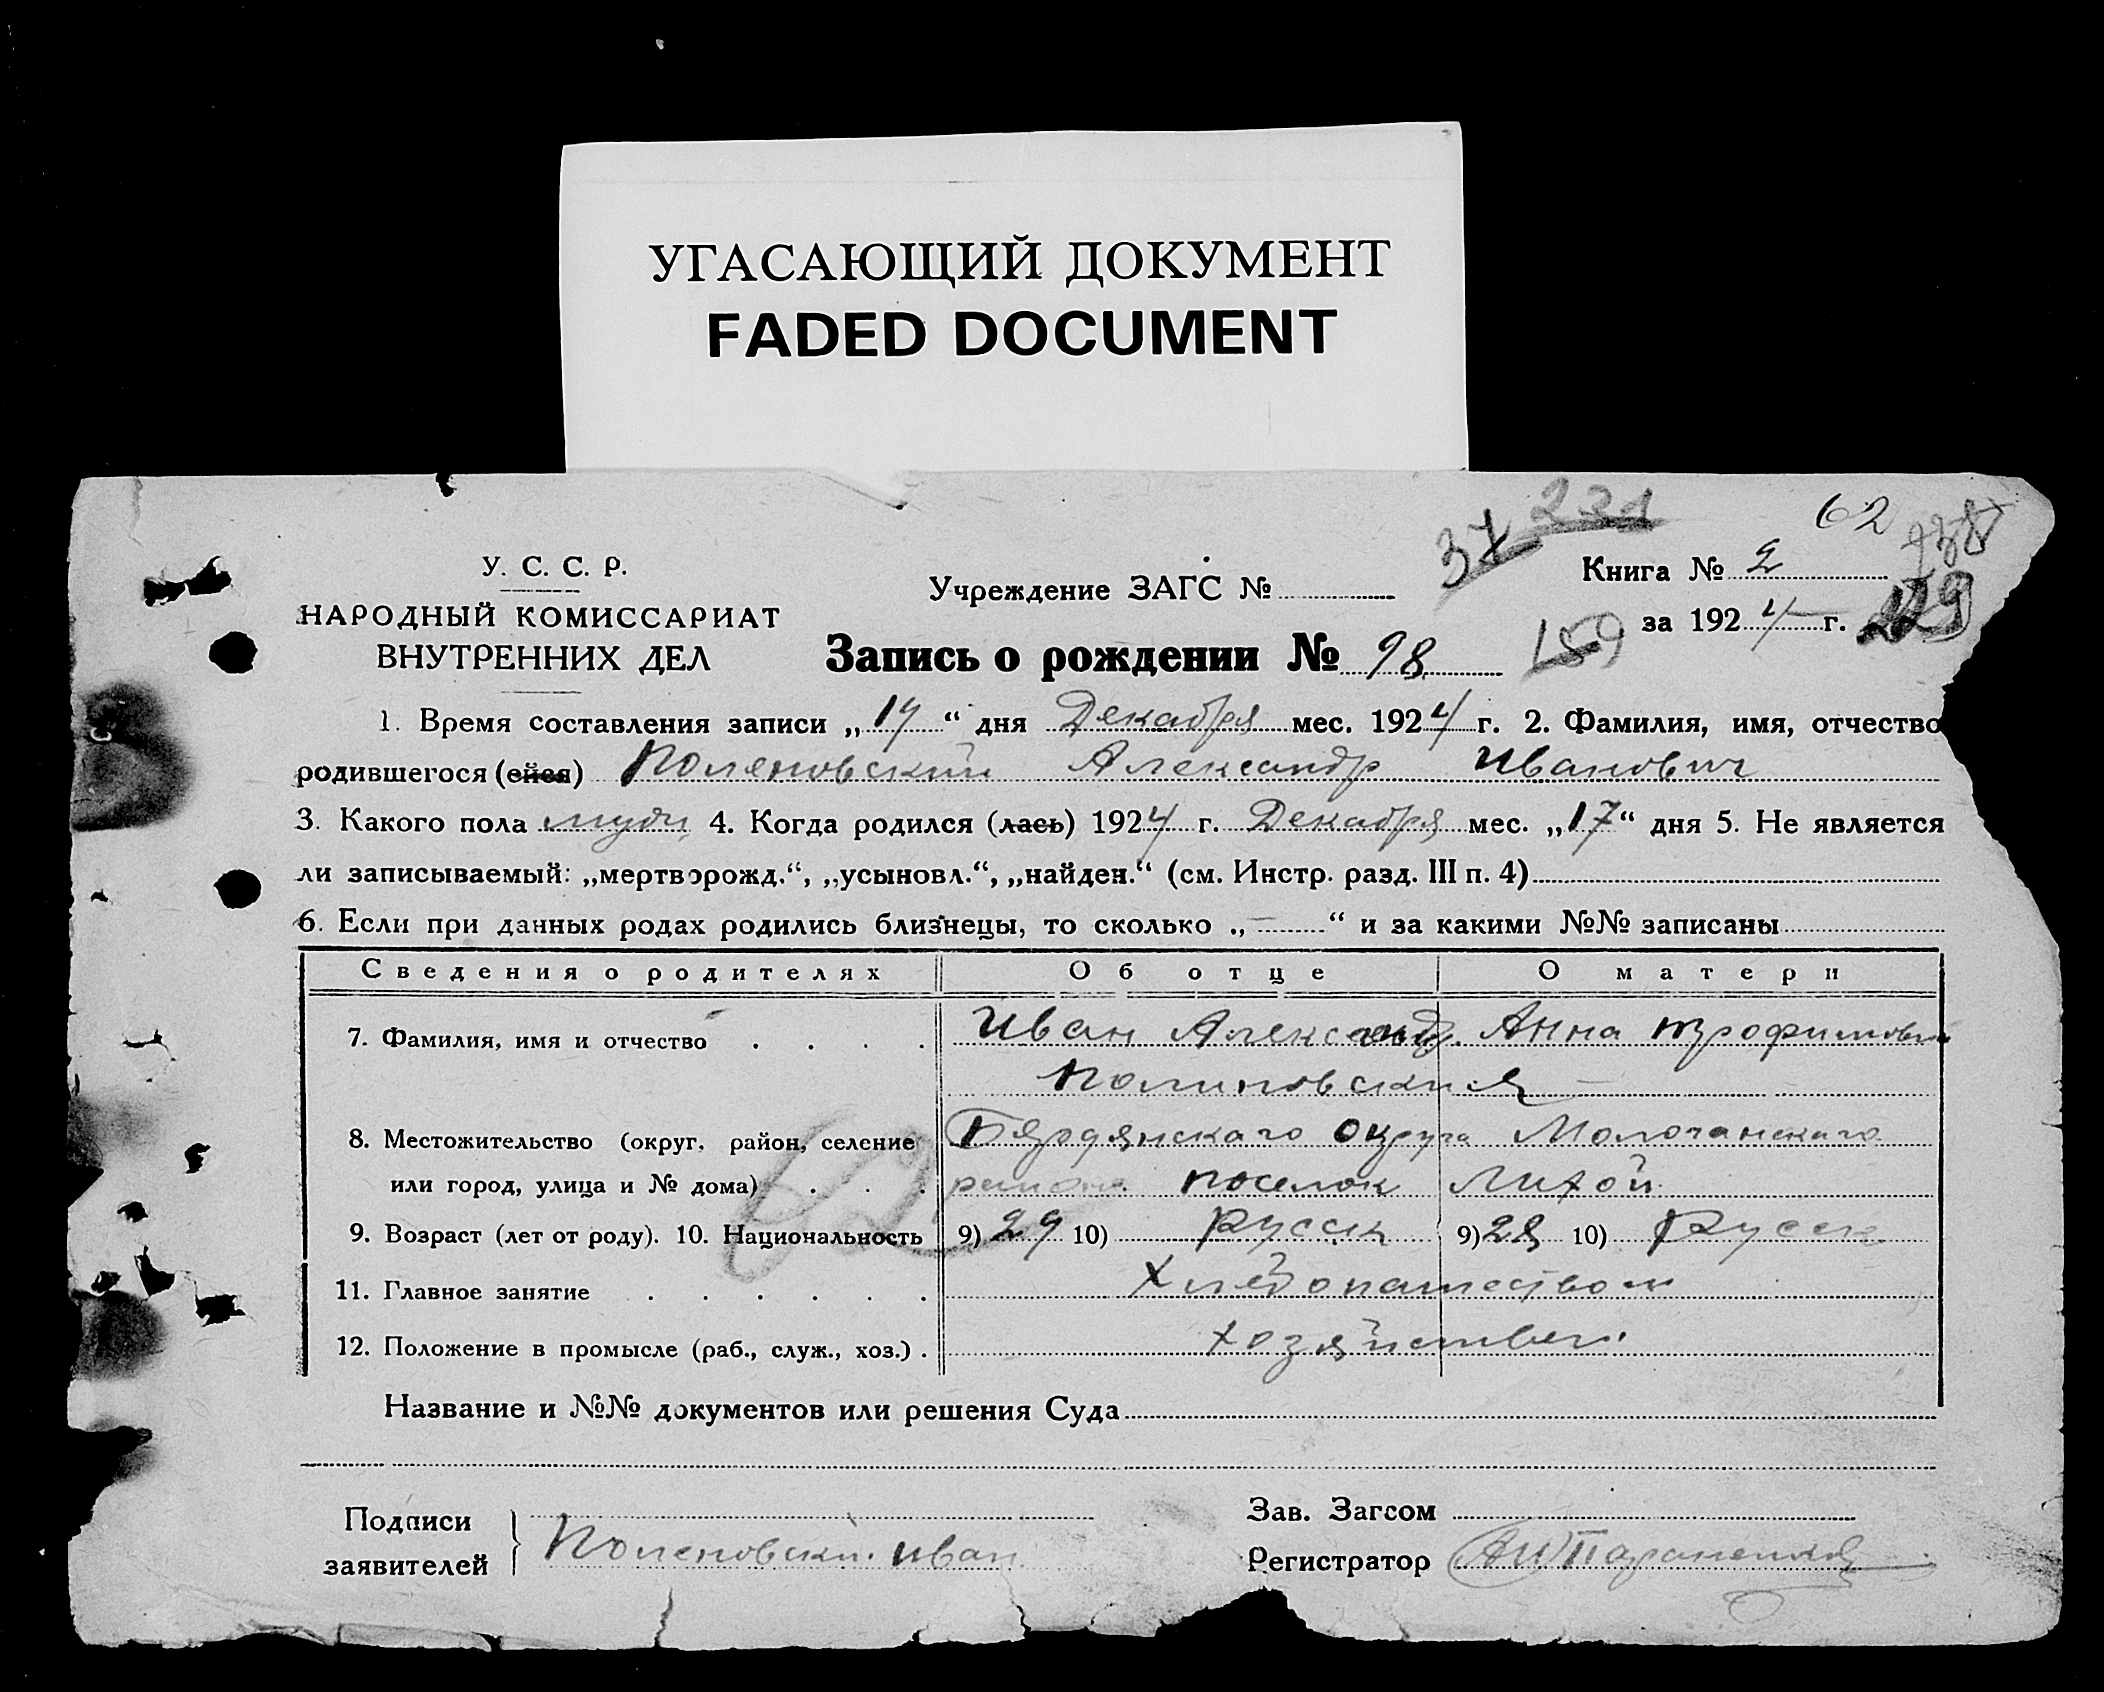 УГАСАЮЩИЙ ДОКУМЕНТ
FADED DOCUMENT
231
62
37
У. С. С. Р.
Учреждение ЗАГС №
Книга № 2
НАРОДНЫЙ КОМИССАРИАТ
за 1924 г. 229
ВНУТРЕННИХ ДЕЛ
Запись о рождении № 98 159
1. Время составления записи „ “ дня Декабря мес. 1924 г. 2. Фамилия, имя, отчество
родившегося (ейся) Поляновский Александр Иванович
3. Какого пола муж 4. Когда родился (лась) 1924 г. Декабря мес. „17“ дня 5. Не является
ли записываемый: „мертворожд.“, „усыновл.“, „найден.“ (см. Инстр. разд. III п. 4)
6. Если при данных родах родились близнецы, то сколько „—“ и за какими №№ записаны
Сведения о родителях Об отце О матери
7. Фамилия, имя и отчество Иван Александ. Анна Трофимовна
Полиновския
8. Местожительство (округ, район, селение Бярдянскаго округа Молочанскаго
или город, улица и № дома) района поселок Лихой
9. Возраст (лет от роду). 10. Национальность 9) 29 10) Русск 9) 28 10) Русск
11. Главное занятие Хлебопашеством
12. Положение в промысле (раб., служ., хоз.) Хозяйствен.
Название и №№ документов или решения Суда
Подписи
заявителей Поленовский Иван
Зав. Загсом
Регистратор